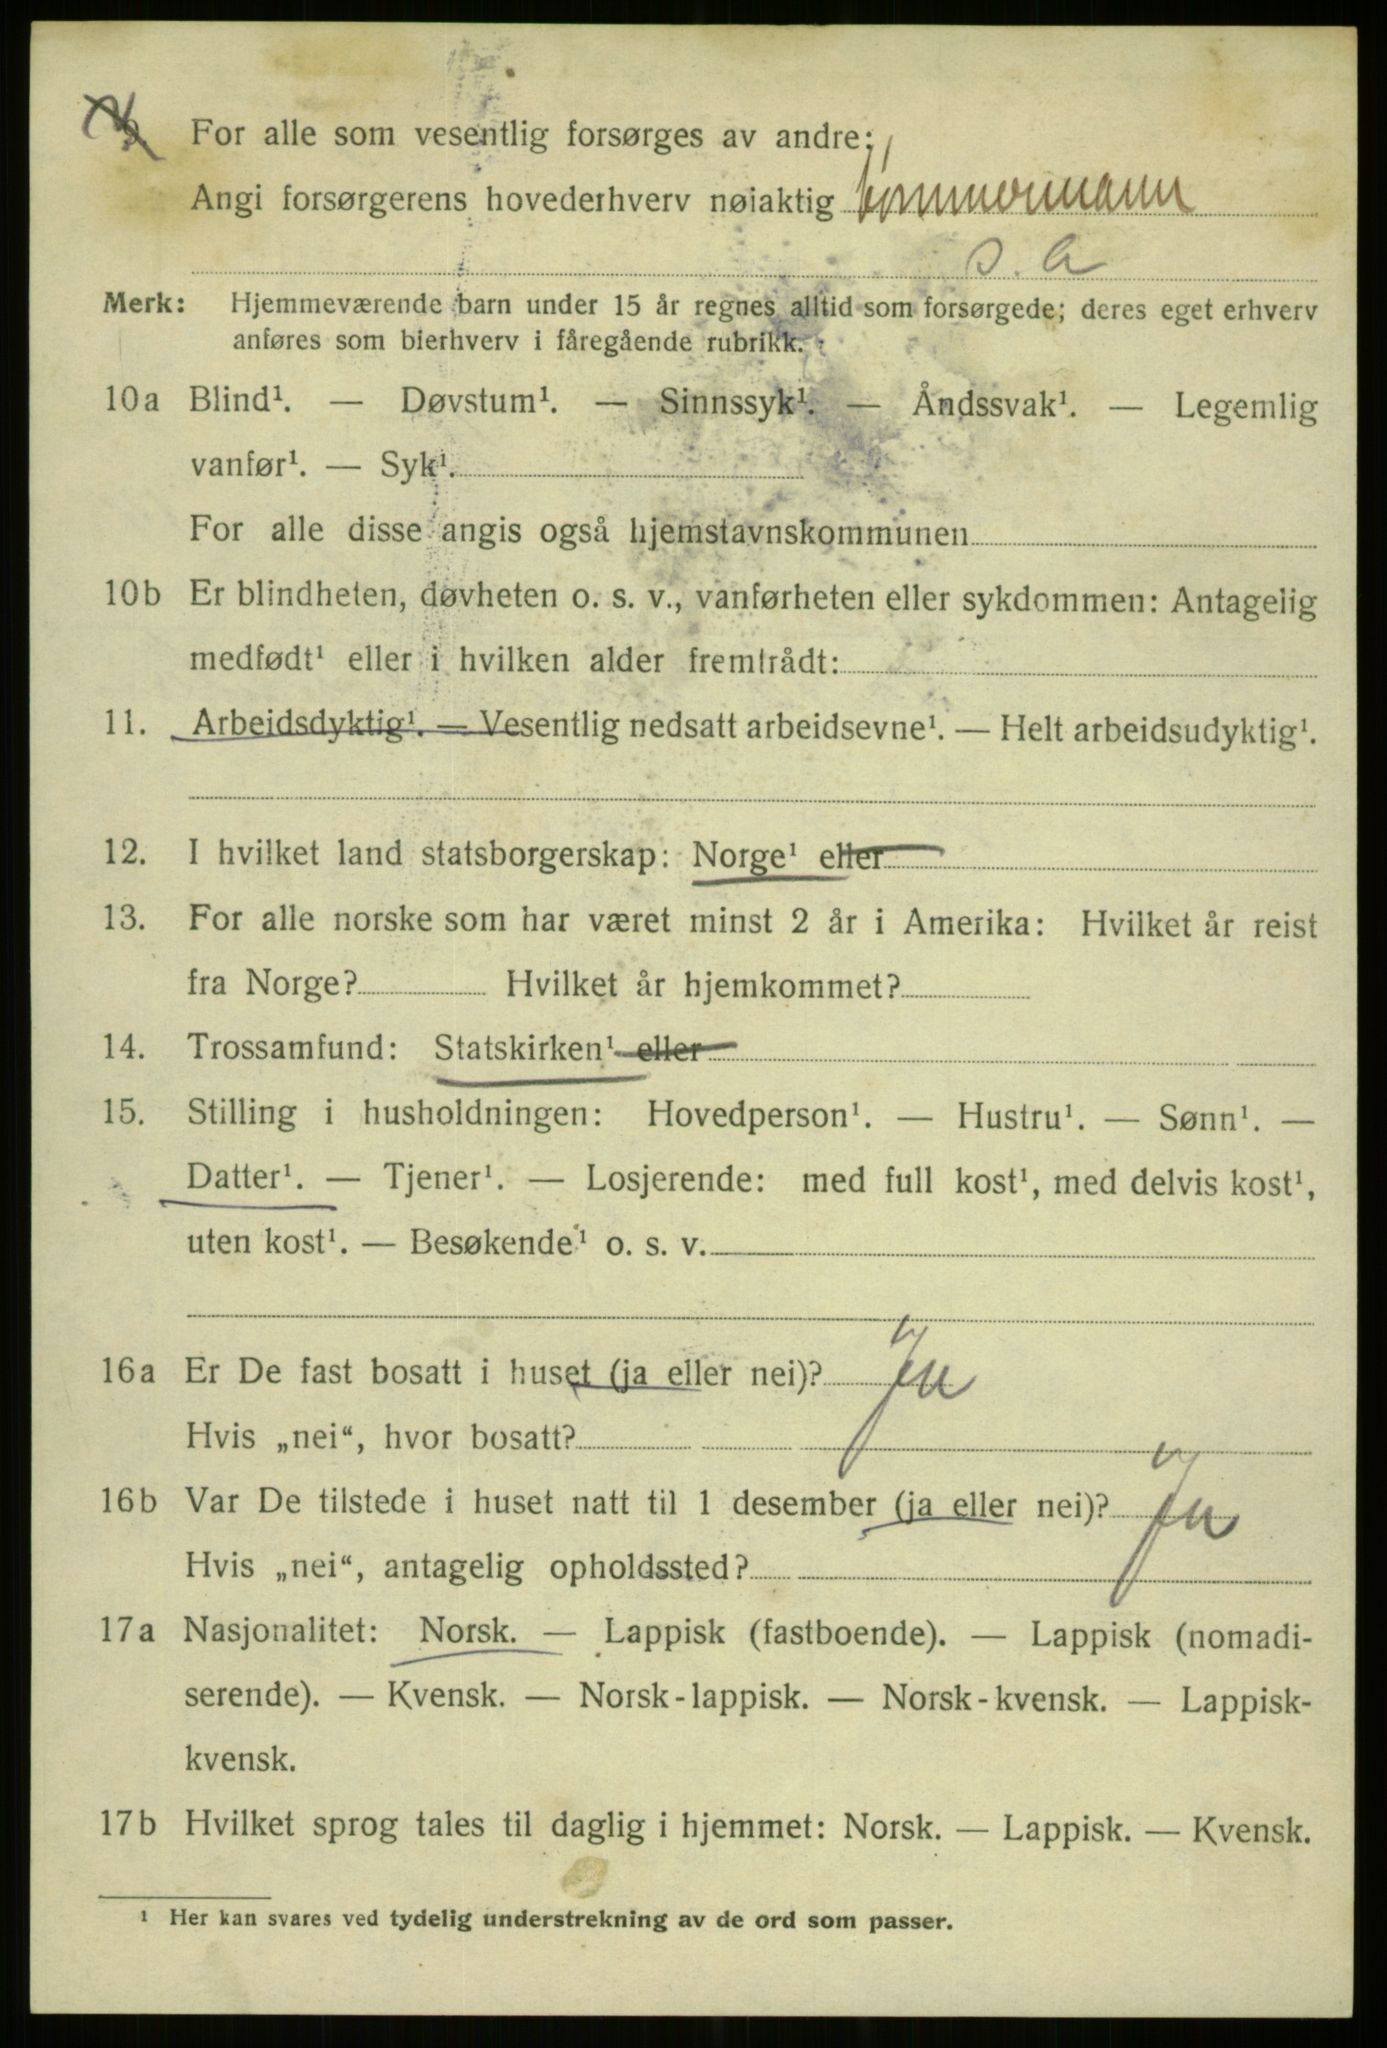 9. For alle som vesentlig forsørges av andre:
Angi forsørgerens hovederhverv nøiaktig tømmermann
S. A
Merk: Hjemmeværende barn under 15 år regnes alltid som forsørgede; deres eget erhverv
anføres som bierhverv i fåregående rubrikk.
10a Blind¹. — Døvstum¹. — Sinnssyk¹. — Åndssvak¹. — Legemlig
vanfør¹. — Syk¹.
For alle disse angis også hjemstavnskommunen
10b Er blindheten, døvheten o. s. v., vanførheten eller sykdommen: Antagelig
medfødt¹ eller i hvilken alder fremtrådt:
11. Arbeidsdyktig¹. — Vesentlig nedsatt arbeidsevne¹. — Helt arbeidsudyktig¹.
12. I hvilket land statsborgerskap: Norge¹ eller
13. For alle norske som har været minst 2 år i Amerika: Hvilket år reist
fra Norge? Hvilket år hjemkommet?
14. Trossamfund: Statskirken¹ eller
15. Stilling i husholdningen: Hovedperson¹. — Hustru¹. — Sønn¹. —
Datter¹. — Tjener¹. — Losjerende: med full kost¹, med delvis kost¹,
uten kost¹. — Besøkende¹ o. s. v.
16a Er De fast bosatt i huset (ja eller nei)? Ja
Hvis „nei“, hvor bosatt?
16b Var De tilstede i huset natt til 1 desember (ja eller nei)? Ja
Hvis „nei“, antagelig opholdssted?
17a Nasjonalitet: Norsk. — Lappisk (fastboende). — Lappisk (nomadi-
serende). — Kvensk. — Norsk-lappisk. — Norsk-kvensk. — Lappisk-
kvensk.
17b Hvilket sprog tales til daglig i hjemmet: Norsk. — Lappisk. — Kvensk.
¹ Her kan svares ved tydelig understrekning av de ord som passer.